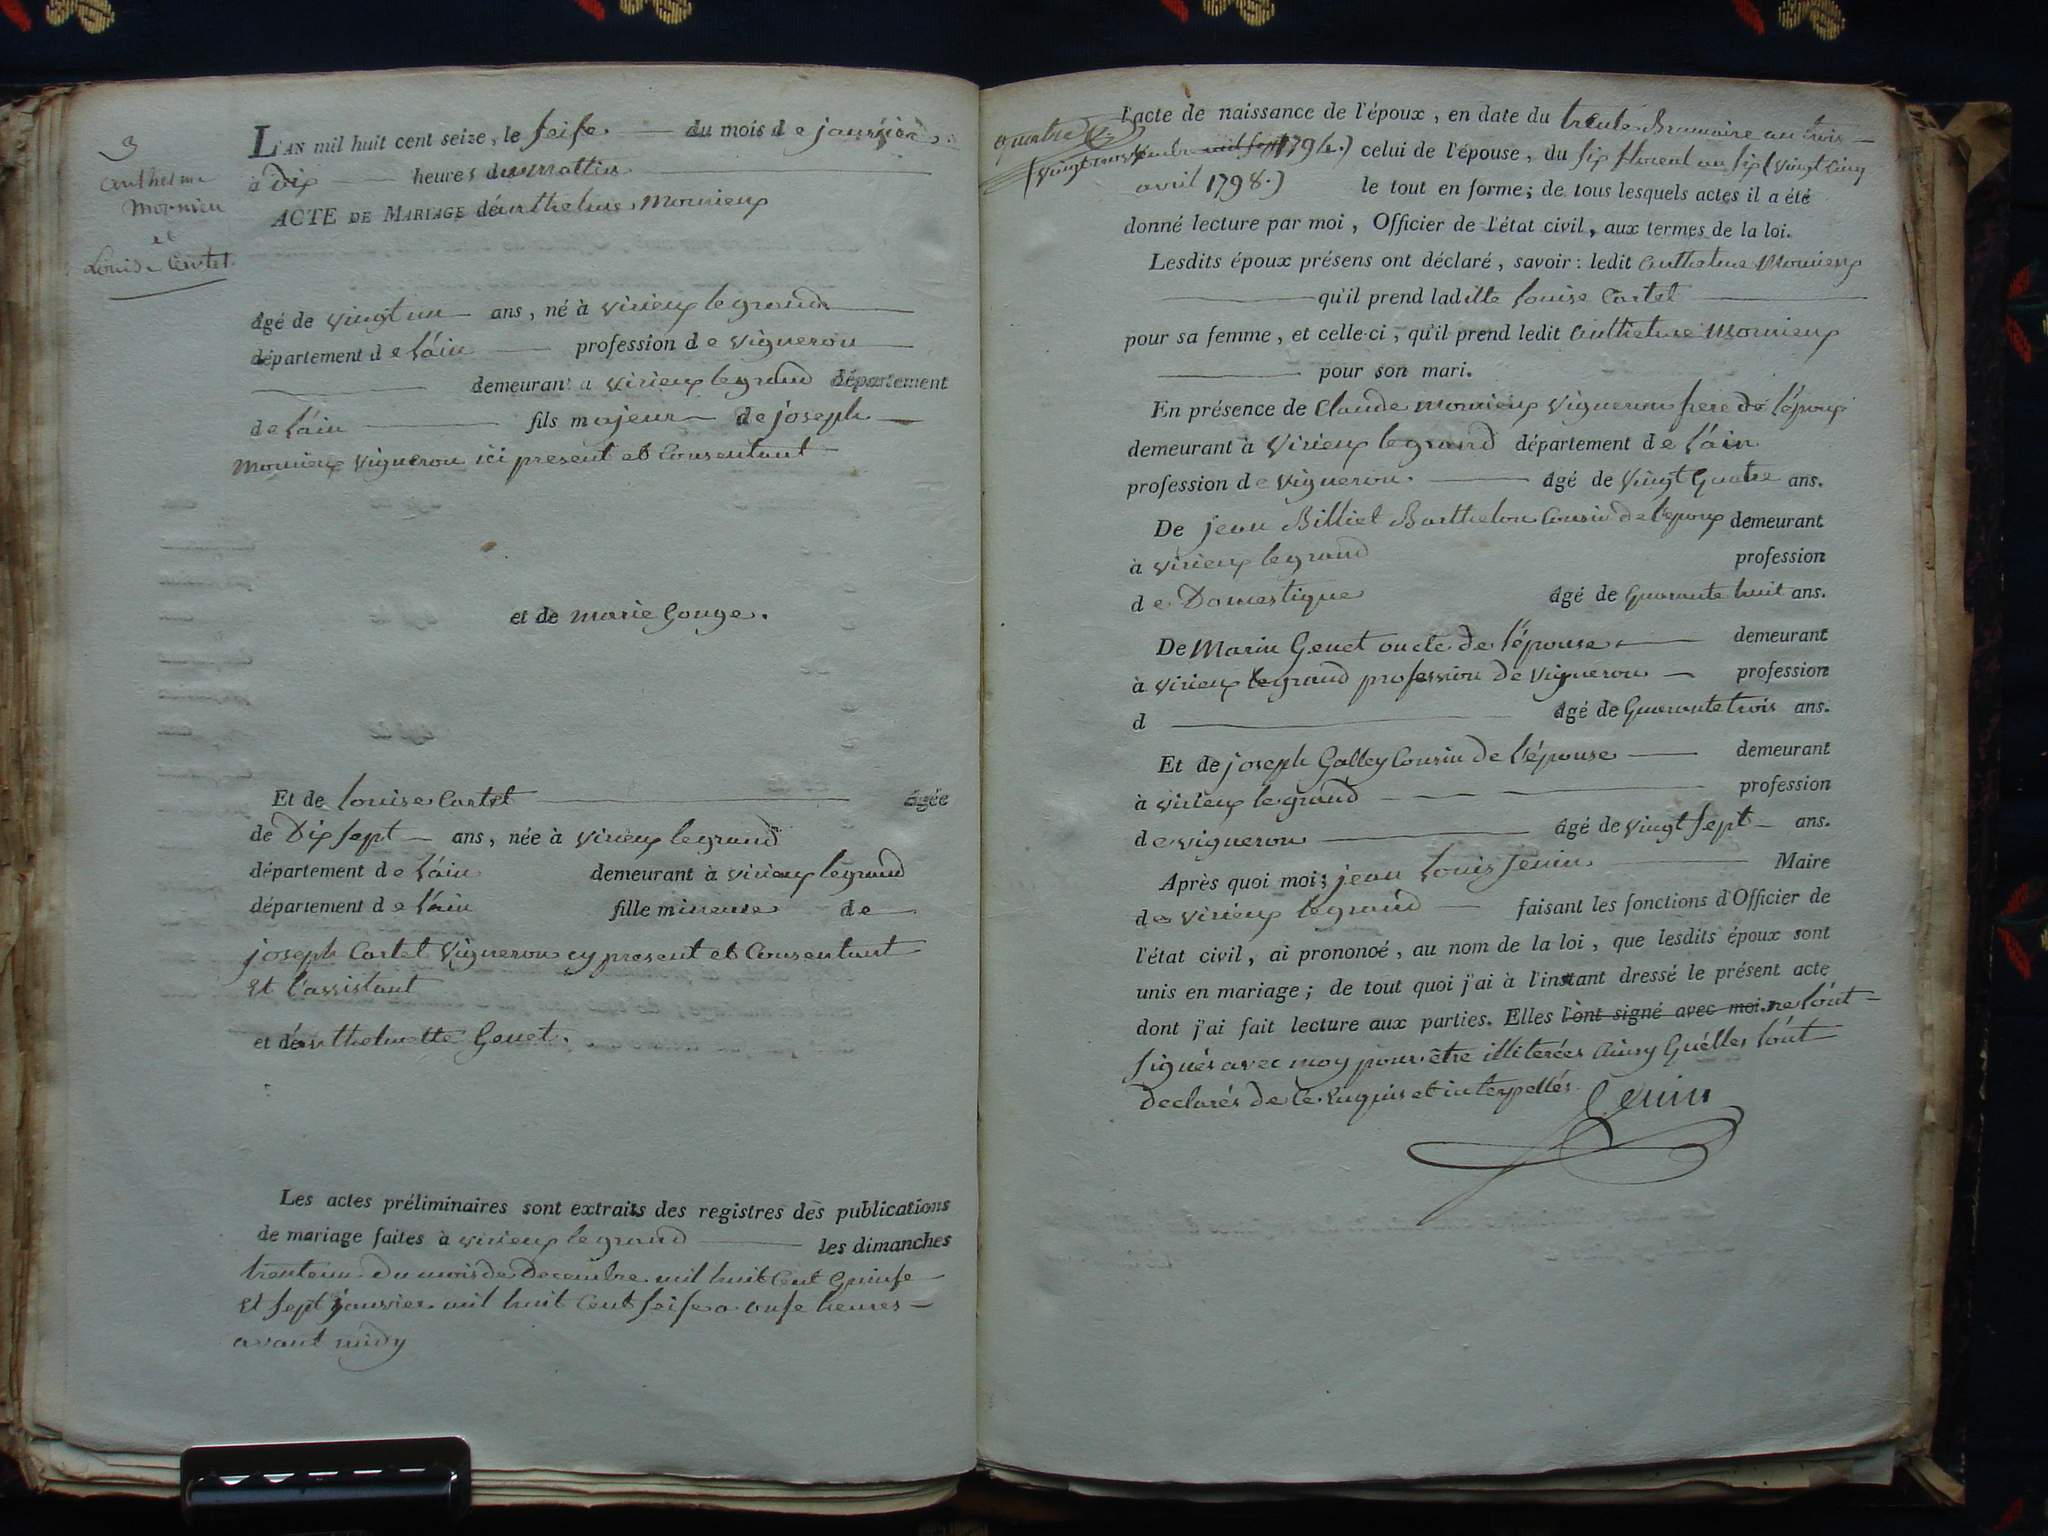 3
anthelme
Monnieu
et
Louise Cartet
L'AN mil huit cent seize, le seise du mois de janvier
à dix heures du mattin
ACTE DE MARIAGE d'anthelme Monnieux
âgé de vingt un ans, né à virieux le grand
département de l'ain profession de vigneron
demeurant a virieux le grand département
de l'ain fils majeur de joseph
Monnieux vigneron ici present et Consentant
et de marie Gouge.
Et de louise Cartet âgée
de Dix sept ans, née à virieux le grand
département de l'ain demeurant à virieux le grand
département de l'ain fille mineure de
joseph Cartet vigneron cy present et Consentant
et l'assistant
et d'anthelmette Genet.
Les actes préliminaires sont extraits des registres des publications
de mariage faites à virieux le grand les dimanches
trente un du mois de Decembre mil huit Cent Quinse
et sept janvier mil huit Cent seise a onse heures
avant midy
l'acte de naissance de l'époux, en date du trente Brumaire an trois
1794.) celui de l'épouse, du six floreal an six (vingt cinq
avril 1798.) le tout en forme; de tous lesquels actes il a été
donné lecture par moi, Officier de l'état civil, aux termes de la loi.
Lesdits époux présens ont déclaré, savoir: ledit anthelme Monnieux
qu'il prend laditte louise Cartet
pour sa femme, et celle-ci, qu'il prend ledit anthelme Monnieux
pour son mari.
En présence de Claude monnieux vigneron frere de l'époux
demeurant à virieux le grand département de l'ain
profession de vigneron. âgé de vingt Quatre ans.
De jean Billiet Barthelon Cousin de l'epoux demeurant
à virieux le grand profession
de Domestique âgé de Quarante huit ans.
De Marin Genet oncle de l'épouse demeurant
à virieux le grand profession de vigneron profession
d âgé de Quarante trois ans.
Et de joseph Galley Cousin de l'épouse demeurant
à virieux le grand profession
de vigneron âgé de vingt sept ans.
Après quoi moi, jean Louis Jenin Maire
de virieux le grand faisant les fonctions d'Officier de
l'état civil, ai prononcé, au nom de la loi, que lesdits époux sont
unis en mariage; de tout quoi j'ai à l'instant dressé le présent acte
dont j'ai fait lecture aux parties. Elles l'ont signé avec moi. ne l'ont
signés avec moy pour être illiterées Ainsy Quélles l'ont
declarés de ce enquis et interpellés.
Jenin